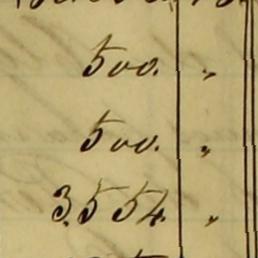 500. "
500. "
3.554 "